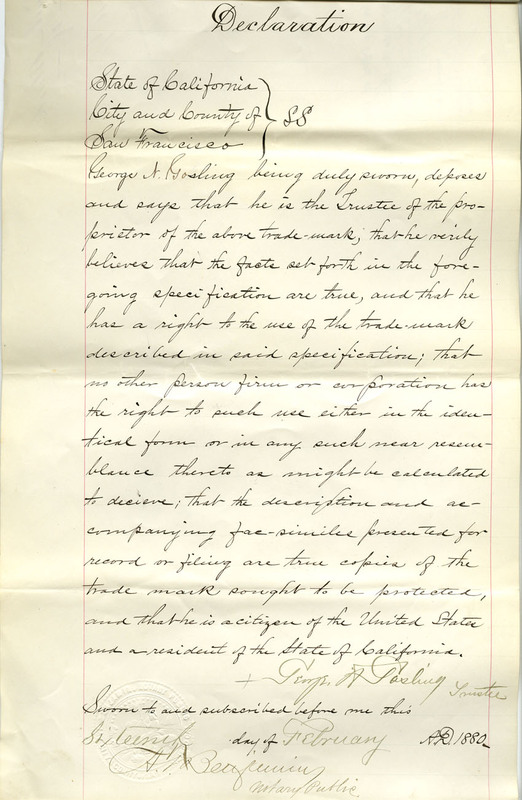 Declaration
State of California
City and County of } SS
San Francisco
George N. Gosling being duly sworn, deposes
and says that he is the Trustee of the pro-
prietor of the above trade-mark, that he verily
believes that the facts set forth in the fore-
going specification are true, and that he
has a right to the use of the trade-mark
described in said specification; that
no other person firm or corporation has
the right to such use either in the iden-
tical form or in any such near resem-
blance thereto as might be calculated
to decieve; that the description and ac-
companying fac-similes presented for
record or filing are true copies of the
trade mark sought to be protected,
and that he is a citizen of the United States
and a resident of the State of California.
+ George N Gosling Trustee
Sworn to and subscribed before me this
Sixteenth day of February A.D. 1880
Benjamin
Notary Public